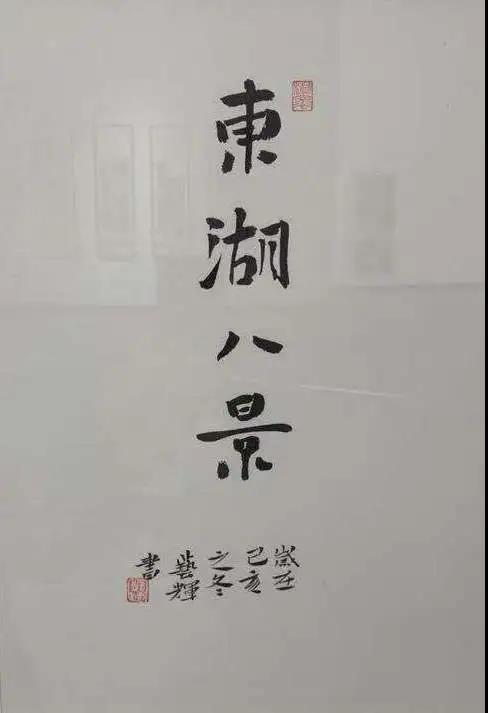 東湖八景
歲在
己亥
之冬
藝輝
書